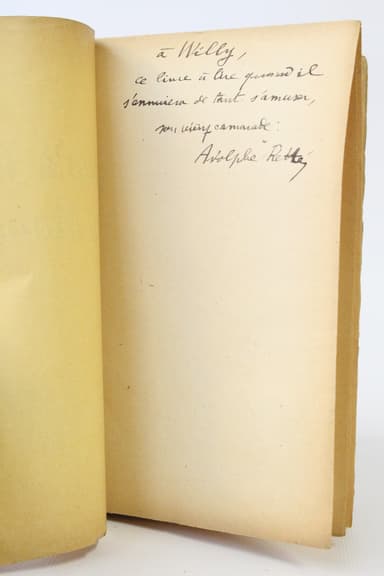 à Willy,
ce livre à lire quand il
s'ennuiera de tant s'amuser,
son vieux camarade :
Adolphe Retté